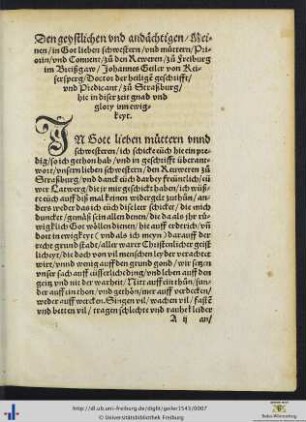 Den geystlichen vnd andåchtigen/ Mei-
nen/in Got lieben schwestern/vnd můttern/Pri-
orin/vnd Conuent/zů den Reweren/zů Freiburg
im Breißgaw/Johannes Geiler von Kei-
sersperg/Doctor der heiligẽ geschrifft/
vnd Predicant/zů Straßburg/
hie in diser zeit gnad vnd
glory inn ewig-
keyt.
IN Gott lieben můttern vnnd
schwesteren/ich schick eüch hie ein pre-
dig/so ich gethon hab/vnd in geschrifft überant-
wort/vnsern lieben schwestern/den Reuweren zů
Straßburg/vnd danck eüch darbey freüntlich/eü-
wer Latwerg/die ir mir geschickt haben/ich wüß-
te eüch auff diß mal keinen widergelt zůthůn/an-
ders weder das ich eüch dise leer schicket/die mich
duncket/gemåß sein allen denen/die da als jhr rů-
wigklich Got wöllen dienen/hie auff erdtrich/vñ
dort in ewigkeyt/vnd als ich meyn/dar auff der
recht grund stadt/aller warer Christenlicher geist-
licheyt/die doch von vil menschen leyder verachtet
wirt/vnnd wenig auff den grund gond/wir setzen
vnser sach auff eüsserliche ding/vnd leben auff den
geitz vnd nit der warheit/Nitt auff ein thůn/sun-
der auff ein thon/vnd gethôn/mer auff verdecken/
weder auff wercken. Singen vil/wachen vil/fastẽ
vnd betten vil/tragen schlechte vnd rauhe kleider
A ij an/
http://dl.ub.uni-freiburg.de/diglit/geiler1543/0007
© Universitätsbibliothek Freiburg